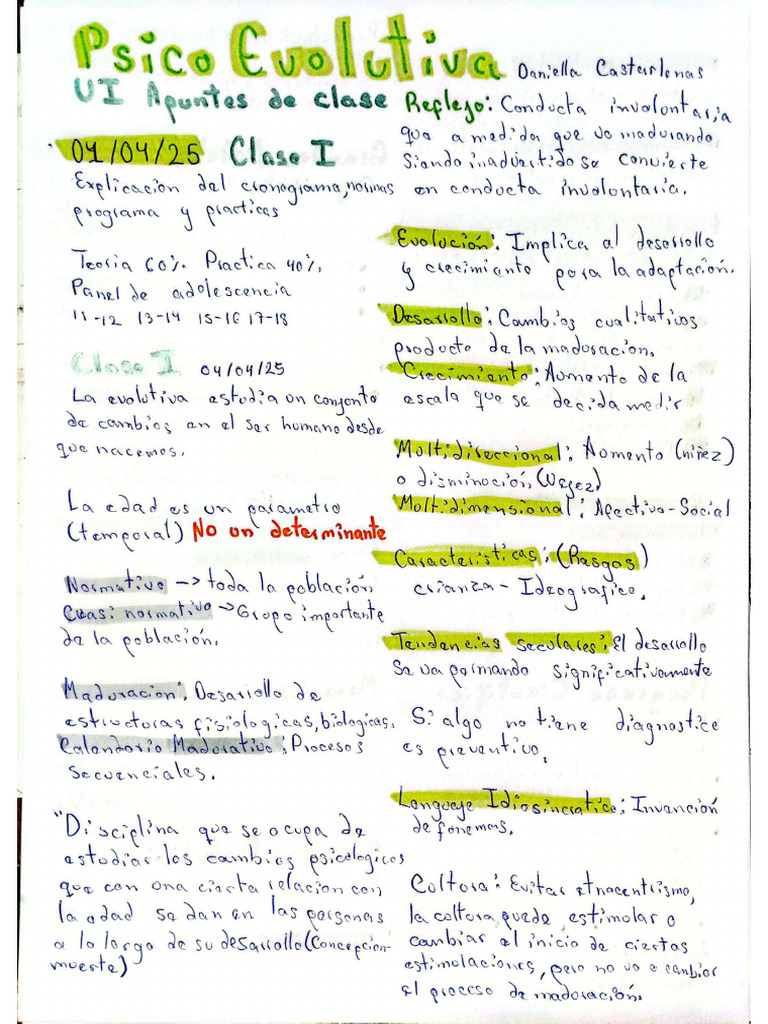 Psico Evolutiva
Daniella Casteirlenas
UI Apuntes de clase
01/04/25 Clase I
Explicación del cronograma, normas
programa y practicas
Teoria 60% Practica 40%.
Panel de adolescencia
11-12 13-14 15-16 17-18
Clase I 04/04/25
La evolutiva estudia un conjunto
de cambios en el ser humano desde
que nacemos.
La edad es un parametro
(temporal) No un determinante
Normativo → toda la población
Cuasi normativo → Grupo importante
de la población.
Maduración: Desarrollo de
estructuras fisiologicas, biologicas.
Calendario Madurativo: Procesos
secuenciales.
"Disciplina que se ocupa de
estudiar los cambios psicologicos
que con una cierta relacion con
la edad se dan en las personas
a lo largo de su desarrollo (Concepcion-
muerte)
Reflejo: Conducta involuntaria
que a medida que va madurando
Siendo inadvertido se convierte
en conducta involuntaria.
Evolución: Implica al desarrollo
y crecimiento para la adaptación.
Desarrollo: Cambios cualitativos
producto de la maduración.
Crecimiento: Aumento de la
escala que se decida medir
Multidireccional: Aumento (niñez)
o disminución (Vejez)
Multidimensional: Afectiva-Social
Caracteristicas: (Rasgos)
crianza - Ideografico.
Tendencias seculares: El desarrollo
Se va formando significativamente
Si algo no tiene diagnostice
es preventivo.
Lenguaje Idiosincratice: Invención
de fonemas.
Cultura: Evitar etnacentrismo,
la cultura puede estimular o
cambiar el inicio de ciertas
estimulaciones, pero no va a cambiar
el proceso de maduración.